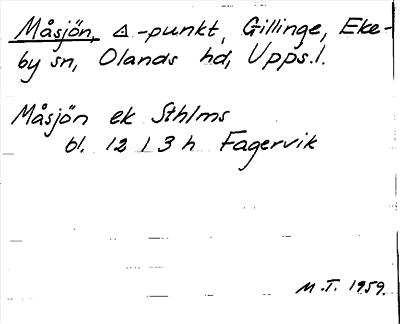 Måsjön, △-punkt, Gillinge, Eke-
by sn, Olands hd, Upps. l.
Måsjön ek Sthlms
bl. 12 I 3 h Fagervik
M.T. 1959.